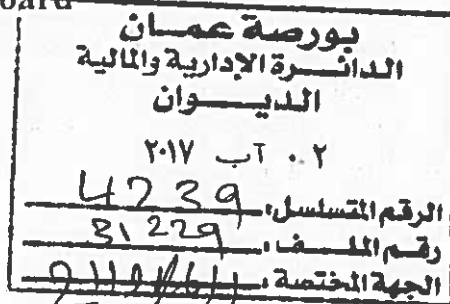 oard
بورصة عمان
الدائرة الإدارية والمالية
الديوان
٠٢ آب ٢٠١٧
الرقم المتسلسل: 4239
رقم الملف: 31229
الجهة المختصة: